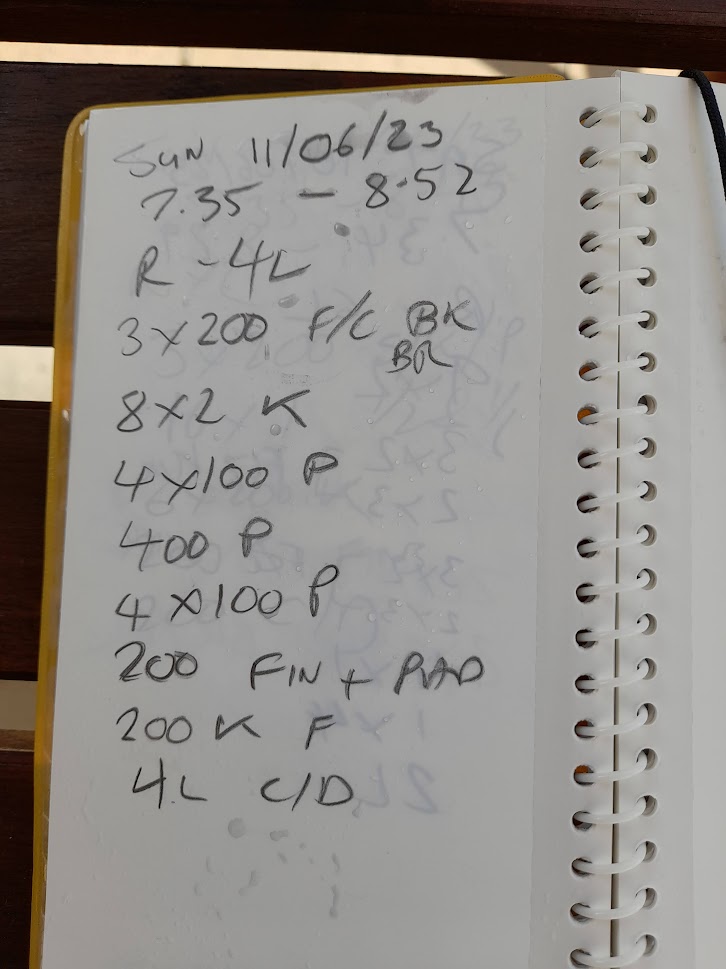 SUN 11/06/23
7.35 - 8.52
R - 4L
3 x 200 F/C BK
BR
8 x 2 K
4 x 100 P
400 P
4 x 100 P
200 FIN + PAD
200 K F
4L C/D